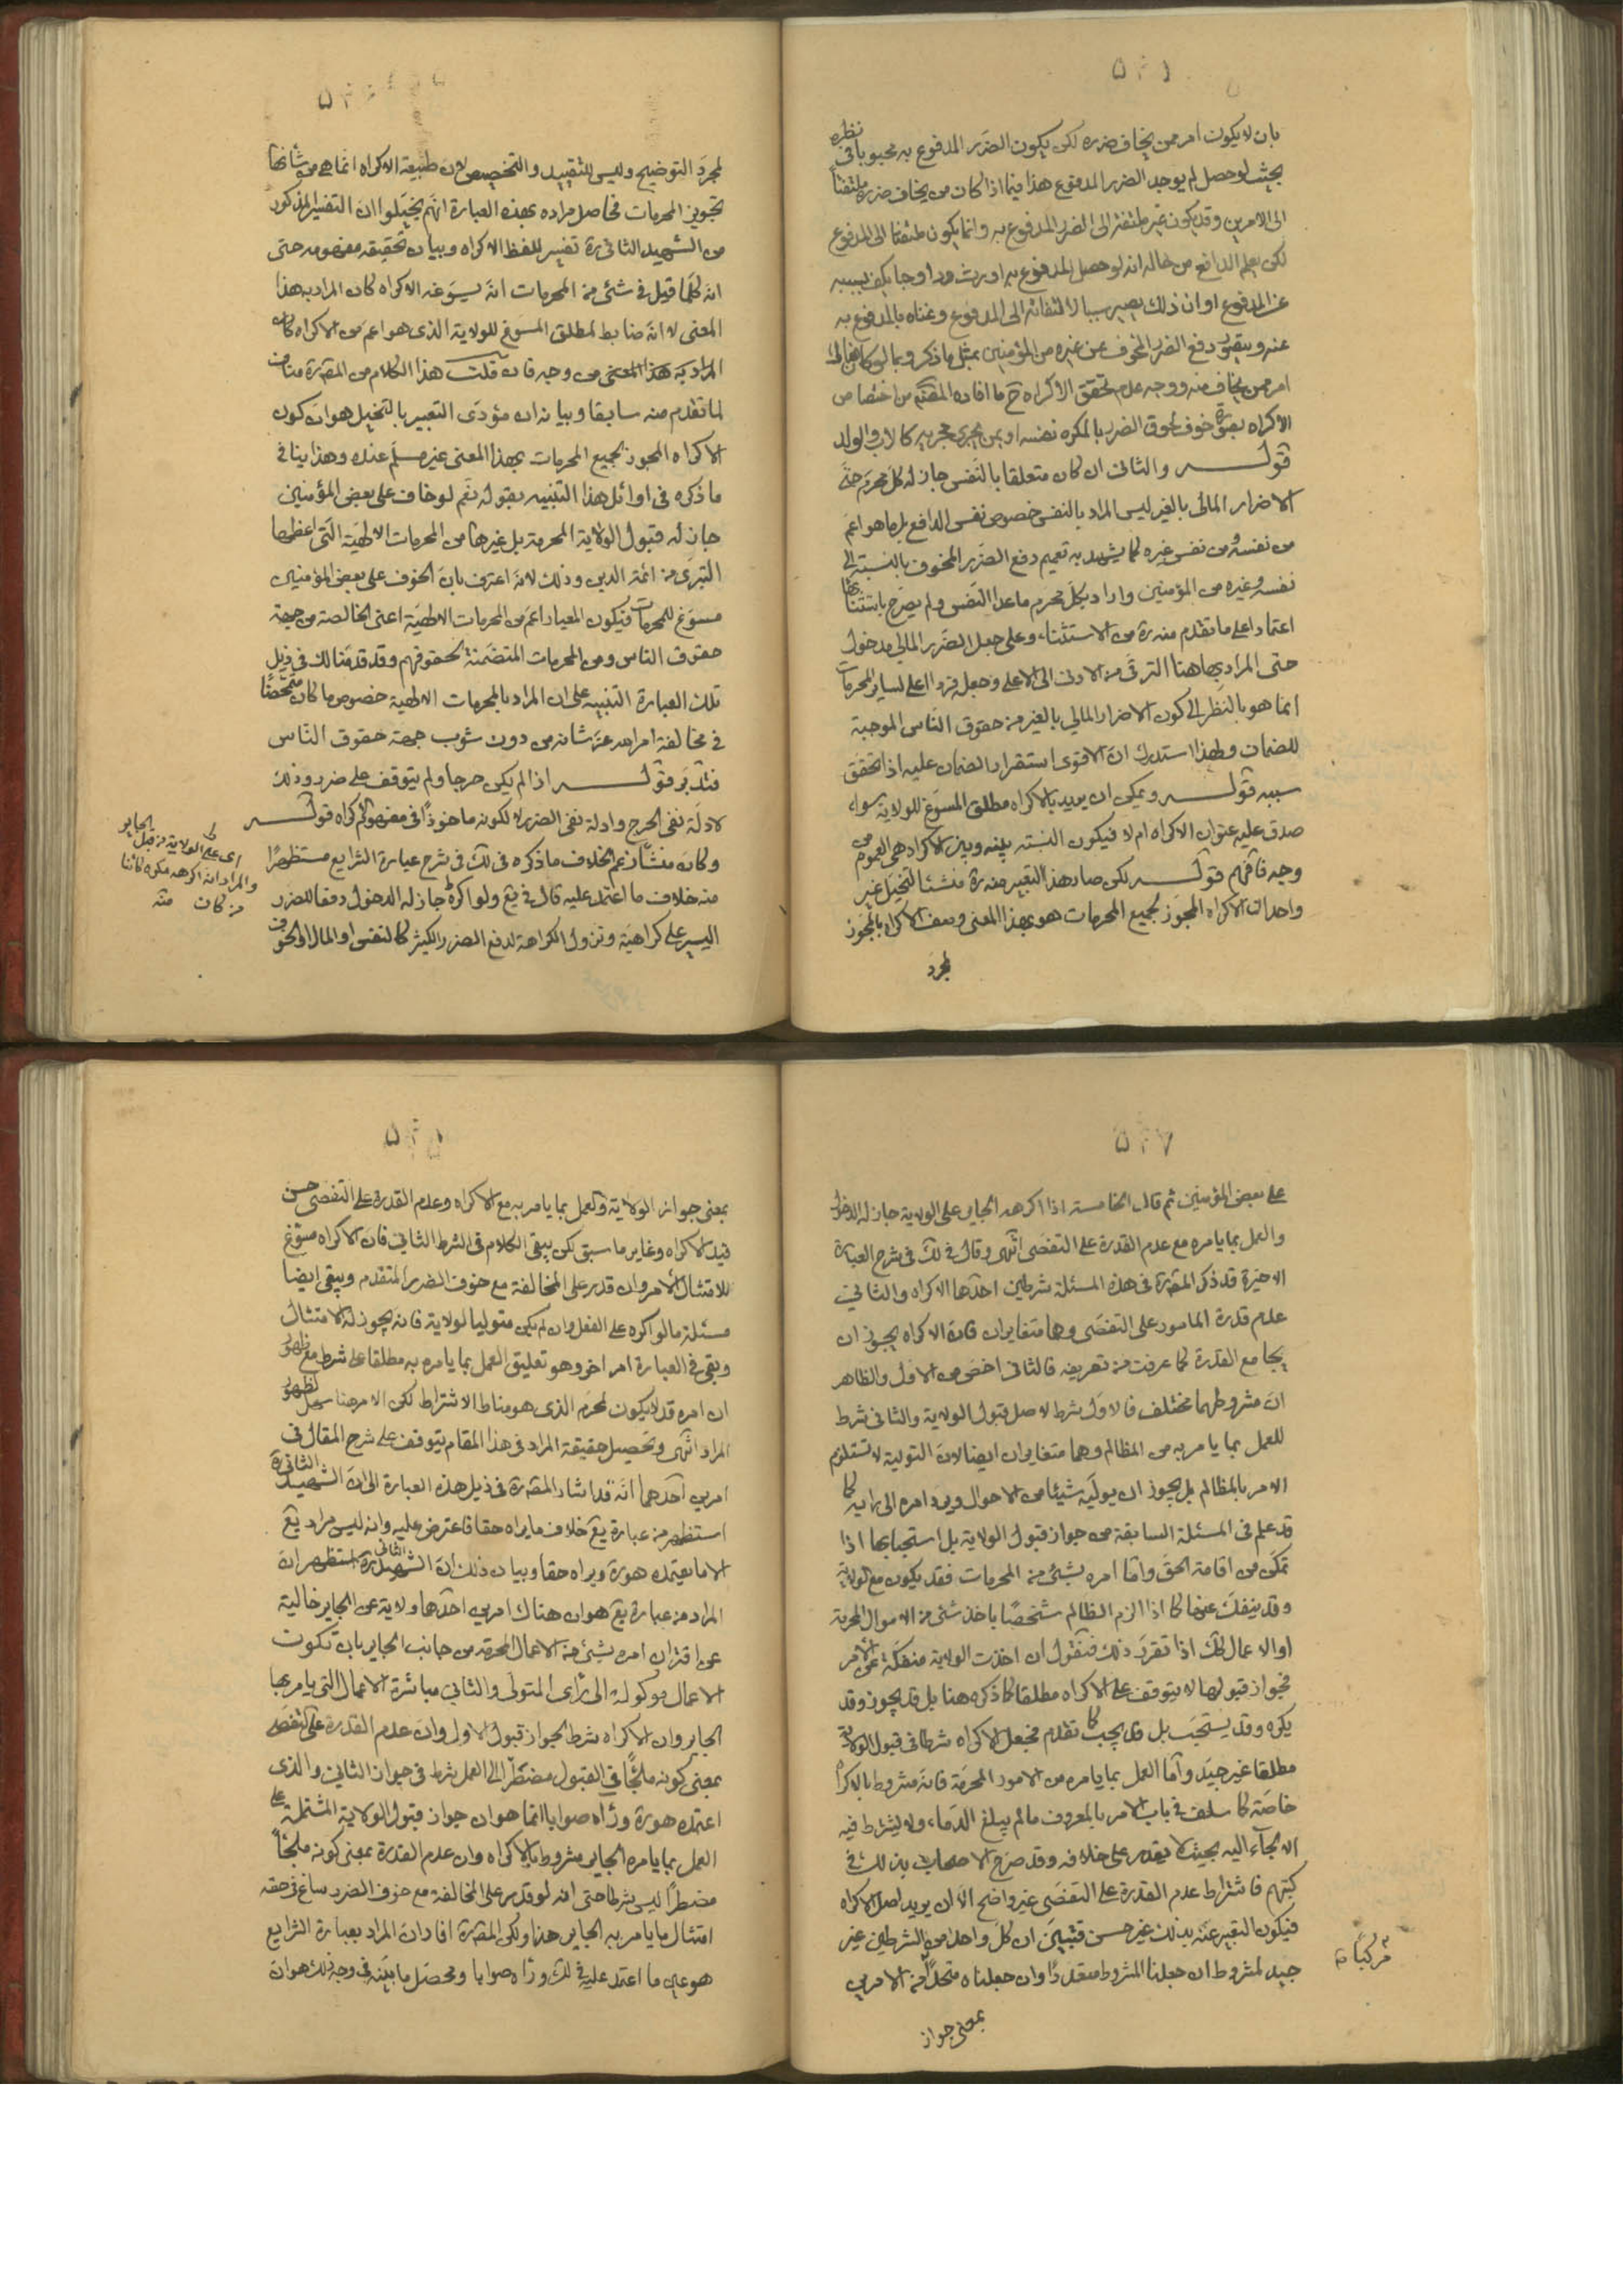 بان لا يكون امر ممن يخاف ضرره لكن يكون الضرر المدفوع به محبوبا في نظره
بحيث لو حصل لم يوجد الضرر المدفوع هذا فيما اذا كان من يخاف ضرره ملتفتا
الى الامرين وقد يكون غير ملتفت الى الضرر المدفوع به وانما يكون ملتفتا الى المدفوع
لكن يعلم الدافع من حاله انه لو حصل المدفوع به اورث يكف بسببه
عن المدفوع او ان ذلك يصير سببا لالتفاته الى المدفوع وغناه بالمدفوع به
عنه ويتصور دفع الضرر المخوف عن غيره من المؤمنين بمثل ما ذكر وبما لو كان هناك
امر ممن يخاف منه ووجه عدم تحقق الاكراه ح ما افاده المصنف من اختصاص
الاكراه بصورة خوف لحوق الضرر بالمكره نفسه او بمن يجرى مجريه كالاب والولد
قوله والثانى ان كان متعلقا بالنفس جاز له كل محرم حتى
الاضرار المالى بالغير ليس المراد بالنفس خصوص نفس الدافع بل ما هو اعم
من نفسه ومن نفس غيره كما يشهد به تعميم دفع الضرر المخوف بالنسبة الى
نفسه وغيره من المؤمنين واراد بكل محرم ما عدا النفس ولم يصرح باستثنائها
اعتمادا على ما تقدم منه ره من الاستثناء وعلى جعل الضرر المالي مدخول
حتى المراد بها هنا الترقى من الادنى الى الاعلى وجعله فردا اعلى لساير المحرمات
انما هو بالنظر الى كون الاضرار المالي بالغير من حقوق الناس الموجبة
للضمان ولهذا استدرك ان الاقوى استقرار الضمان عليه اذا تحقق
سببه قوله ويمكن ان يريد بالاكراه مطلق المسوغ للولاية سواء
صدق عليه عنوان الاكراه ام لا فيكون النسبة بينه وبين الاكراه هى العموم من
وجه فافهم قوله لكن صار هذا التعبير منه ره منشئا لتخيل غير
واحد ان الاكراه المجوز لجميع المحرمات هو بهذا المعنى وصف الاكراه بالمجوز
لمجرد
لمجرد التوضيح وليس للتقييد والتخصيص لان طبيعة الاكراه انما هى من شأنها
تجويز المحرمات فحاصل مراده بهذه العبارة انهم تخيلوا ان التفسير المذكور
من الشهيد الثانى ره تفسير للفظ الاكراه وبيان تحقيقه مفهومه حتى
انه كلما قيل فى شئ من المحرمات انه يسوغه الاكراه كان المراد به هذا
المعنى لا انه ضابط لمطلق المسوغ للولاية الذى هو اعم من الاكراه كان
المراد به هذا المعنى من وجه فان قلت هذا الكلام من المصره مناف
لما تقدم منه سابقا وبيانه ان مؤدى التعبير بالتخيل هو ان كون
الاكراه المجوز لجميع المحرمات بهذا المعنى غير مسلم عنده وهذا ينافى
ما ذكره فى اوائل هذا التنبيه بقوله نعم لو خاف على بعض المؤمنين
جاز له قبول الولاية المحرمة بل غيرها من المحرمات الالهية التى اعظمها
التبرى من ائمة الدين وذلك لانه اعترف بان الخوف على بعض المؤمنين
مسوغ للمحرمات فيكون المعيار اعم من المحرمات الالهية اعنى الخالصة من جهة
حقوق الناس ومن المحرمات المتضمنة لحقوقهم وقد قدمنا لك فى ذيل
تلك العبارة التنبيه على ان المراد بالمحرمات الالهية خصوص ما كان متمحضا
في مخالفة امر الله عز شانه من دون شوب جهة حقوق الناس
فتدبر قوله اذا لم يكن حرجا ولم يتوقف على ضرر وذلك
لادلة نفى الحرج وادلة نفى الضرر لا لكونه ماخوذا فى مفهوم الاكراه قوله
وكان منشأ زعم الخلاف ما ذكره فى لك فى شرح عبارة الشرايع مستظهرا
منه خلاف ما اعتمد عليه قال فى يع ولو اكره جاز له الدخول دفعا للضرر
اليسير على كراهية وتزول الكراهة لدفع الضرر الكثير كالنفس او المال او الخوف
اى على الولاية من قبل الجاير
والمراد انه اكرهه مكره كائنا
من كان منه
على بعض المؤمنين ثم قال الخامسة اذا اكرهه الجاير على الولاية جاز له الدخول
والعمل بما يامره مع عدم القدرة على التفصى انتهى وقال فى لك فى شرح العبارة
الاخيرة قد ذكر المصره فى هذه المسئلة شرطين احدها الاكراه والثانى
عدم قدرة المامور على التفصى وهما متغايران فان الاكراه يجوز ان
يجامع القدرة كما عرفت من تعريفه فالثانى اخص من الاول والظاهر
ان مشروطهما مختلف فالاول شرط لاصل قبول الولاية والثانى شرط
للعمل بما يامر به من المظالم وهما متغايران ايضا لان التولية لا تستلزم
الامر بالمظالم بل يجوز ان يوليه شيئا من الاحوال ويرد امره الى رايه كما
قد علم فى المسئلة السابقة من جواز قبول الولاية بل استحبابها اذا
تمكن من اقامة الحق واما امره بشئ من المحرمات فقد يكون مع الولاية
وقد ينفك عنها كما اذا الزم الظالم شخصا باخذ شئ من الاموال المحرمة
او الاعمال كك اذا تقرر ذلك فنقول ان اخذت الولاية منفكة عن الامر
فجواز قبولها لا يتوقف على الاكراه مطلقا كما ذكره هنا بل قد يجوز وقد
يكره وقد يستحب بل قد يجب كما تقدم فجعل الاكراه شرطا فى قبول الولاية
مطلقا غير جيد واما العمل بما يامره من الامور المحرمة فانه مشروط بالاكراه
خاصة كما سلف فى باب الامر بالمعروف ما لم يبلغ الدماء ولا يشترط فيه
الالجآء اليه بحيث لا يقدر على خلافه وقد صرح الاصحاب بذلك فى
كتبهم فاشتراط عدم القدرة على التفصى غير واضح الا ان يريد اصل الاكراه
فيكون التعبير عنه بذلك غير حسن فتبين ان كل واحد من الشرطين غير
جيد لمشروطه ان جعلنا المشروط متعددا وان جعلناه متحدا من الامرين
مركبا
بمعنى جواز
بمعنى جواز الولاية والعمل بما يامر به مع الاكراه وعدم القدرة على التفصى حسن
قيد الاكراه وغاير ما سبق لكن يبقى الكلام فى الشرط الثانى فان الاكراه مسوغ
للامتثال الامر وان قدر على المخالفة مع خوف الضرر المتقدم ويبقى ايضا
مسئلة ما لو اكره على الفعل وان لم يكن متوليا لولاية فانه يجوز له الامتثال
وبقى فى العبارة امر اخر وهو تعليق العمل بما يامره به مطلقا على شرط مع ظهور
ان امره قد لا يكون لمحرم الذى هو مناط الاشتراط لكن الامر هنا سهل لظهور
المراد انتهى وتحصيل حقيقة المراد فى هذا المقام يتوقف على شرح المقال فى
امرين احدهما انه قد اشار المصره فى ذيل هذه العبارة الى ان الشهيد الثانى ره
استظهر من عبارة يع خلاف ما يراه حقا فاعترض عليه وانه ليس مراد يع
الا ما يعتمده هو ره ويراه حقا وبيان ذلك ان الشهيد الثانى ره استظهر ان
المراد من عبارة يع هو ان هناك امرين احدهما ولاية عن الجاير خالية
عن اقتران امره بشئ من الاعمال المحرمة من جانب الجاير بان تكون
الاعمال موكولة الى رأى المتولى والثانى مباشرة الاعمال التى يامر بها
الجاير وان الاكراه شرط لجواز قبول الاول وان عدم القدرة على التفصى
بمعنى كونه ملجأ فى القبول مضطرا الى العمل شرط فى جواز الثانى والذى
اعتمده هو ره ورأه صوابا انما هو ان جواز قبول الولاية المشتملة على
العمل بما يامره الجاير مشروط بالاكراه وان عدم القدرة بمعنى كونه ملجأ
مضطرا ليس شرطا حتى انه لو قدر على المخالفة مع خوف الضرر ساغ فى حقه
امتثال ما يامر به الجاير هذا ولكن المصره افاد ان المراد بعبارة الشرايع
هو عين ما اعتمد عليه فى لك ورأه صوابا ومحصل ما بينه فى وجه ذلك هو ان